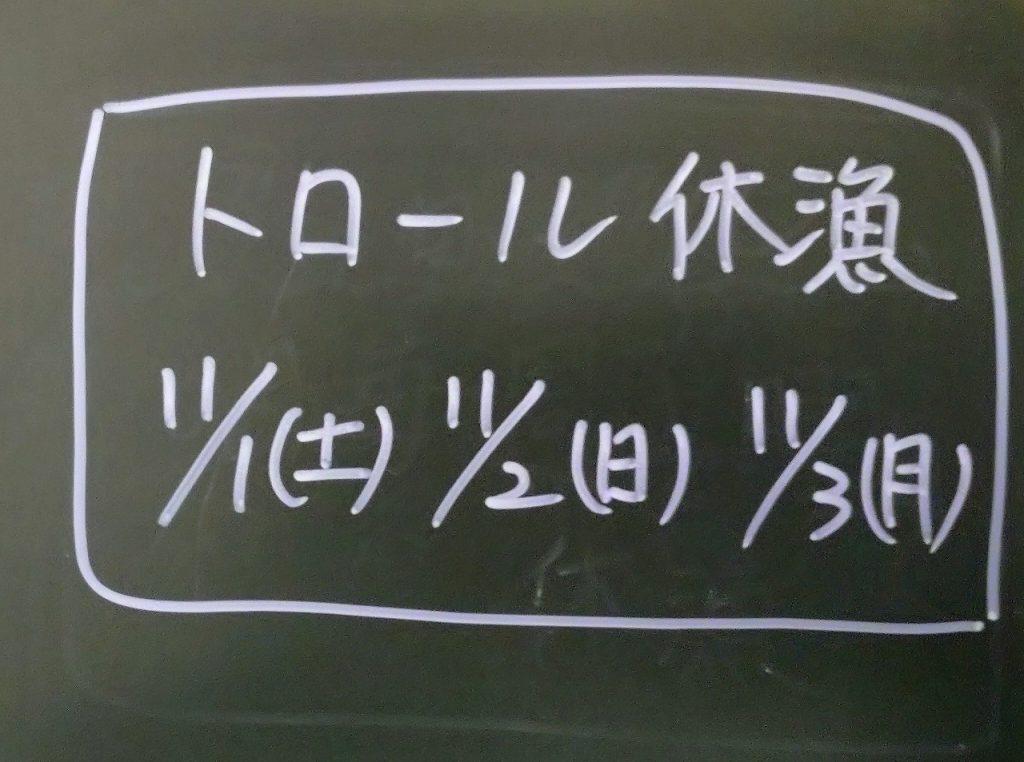 トロール休漁
11/1(土) 11/2(日) 11/3(月)